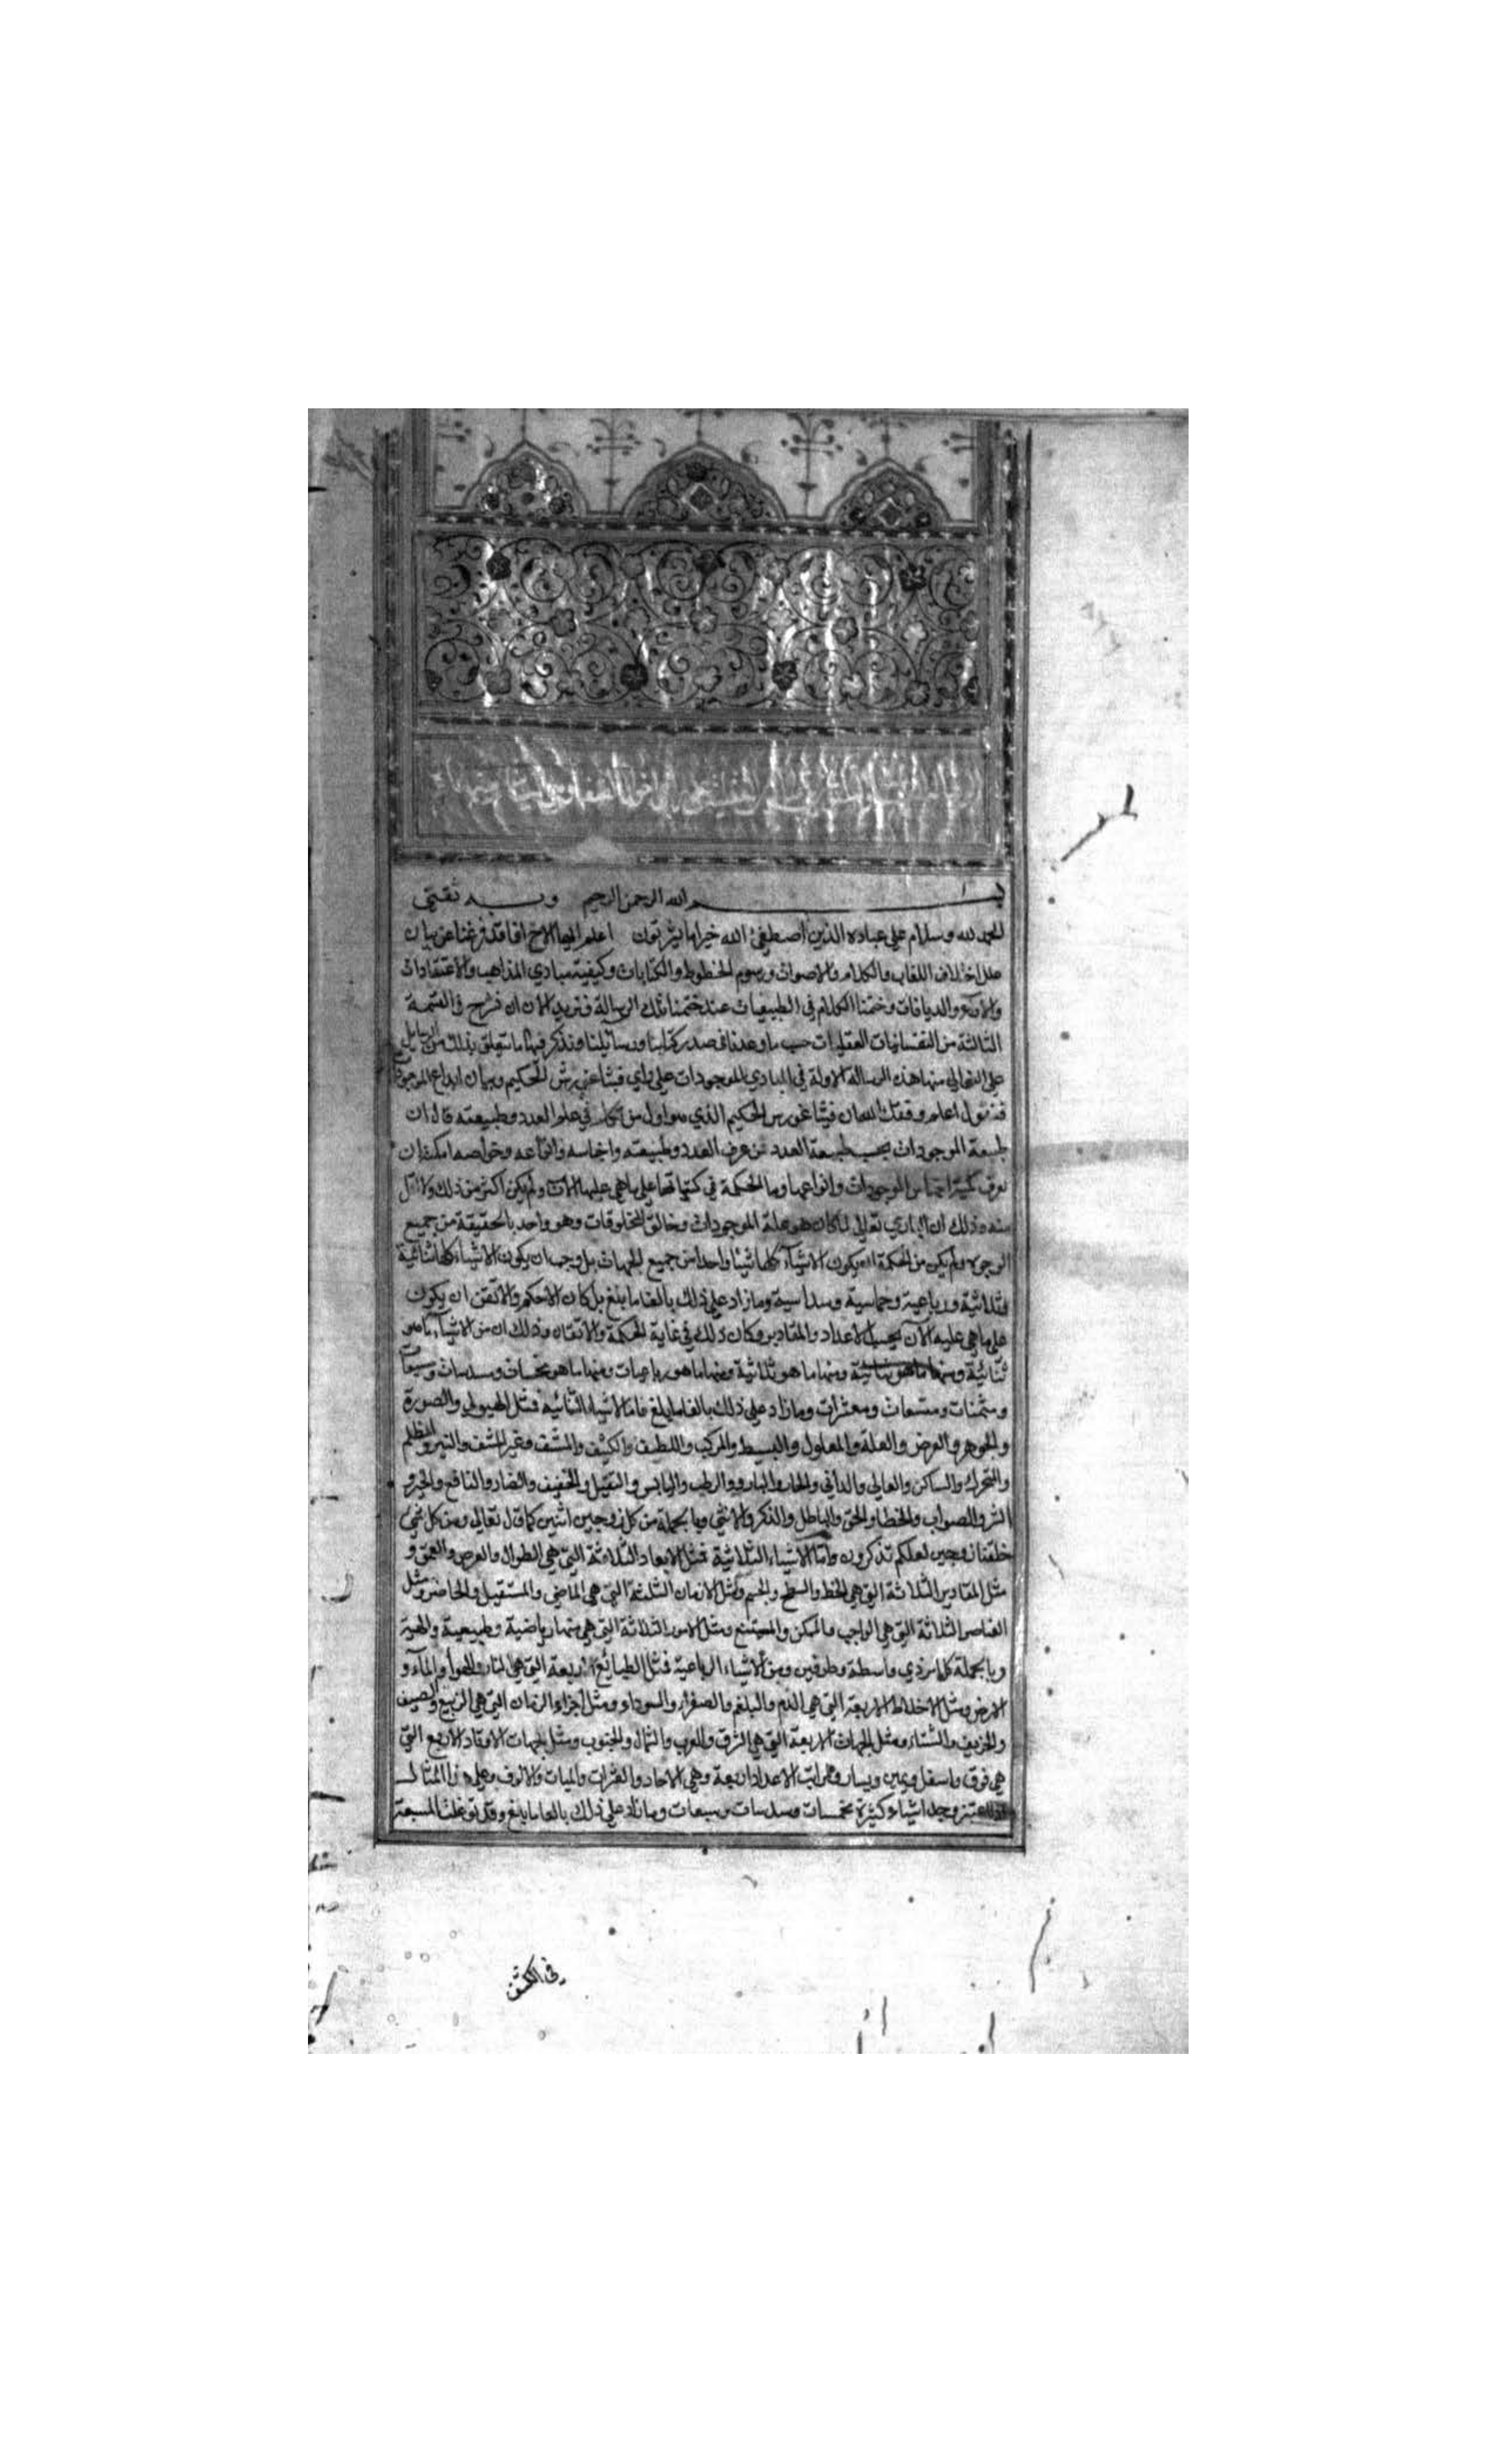 بسم الله الرحمن الرحيم وبه ثقتي
الحمد لله وسلام على عباده الذين اصطفى الله خير اما يشركون اعلم ايها الاخ انا قد فرغنا عن بيان
علل اختلاف اللغات والكلام والاصوات ورسوم الخطوط والكتابات وكيفية مبادي المذاهب والاعتقادات
والآراء والديانات وختمنا الكلام في الطبيعيات عند ختمنا تلك الرسالة فنريد الآن ان نشرح في القسمة
الثالثة من النفسانيات العقليات حسب ما وعدنا في صدر كتابنا ورسائلنا ونذكر فيها ما يتعلق بذلك من الرسايل
على التوالي منها هذه الرسالة الاولة في المبادي الموجودات على راي فيثاغورس الحكيم وبيان ابداع الموجودات
فنقول اعلم وفقك الله ان فيثاغورس الحكيم الذي هو اول من تكلم في علم العدد وطبيعته قال ان
طبيعة الموجودات بحسب طبيعة العدد فمن عرف العدد وطبيعته واجناسه وانواعه وخواصه امكنه ان
يعرف كمية اجناس الموجودات وانواعها وما الحكمة في كمياتها على ما هي عليها الآن ولم يكن اكثر من ذلك ولا اقل
منه وذلك ان الباري تعالى لما كان هو علة الموجودات وخالق المخلوقات وهو واحد بالحقيقة من جميع
الوجوه ولم يكن من الحكمة ان يكون الاشياء كلها شيئا واحدا من جميع الجهات بل وجب ان يكون الاشياء كلها ثنائية
وثلاثية ورباعية وخماسية وسداسية وما زاد على ذلك بالغا ما بلغ بل كان الاحكم والاتقن ان يكون
على ما هي عليه الآن بحسب الاعداد والمقادير وكان ذلك في غاية الحكمة والاتقان وذلك ان من الاشياء ما هو
ثنائية ومنها ما هو ثنائية ومنها ما هو ثلاثية ومنها ما هو رباعيات ومنها ما هو مخمسات ومسدسات ومسبعات
ومثمنات ومتسعات ومعشرات وما زاد على ذلك بالغا ما بلغ فاما الاشياء الثنائية فمثل الهيولى والصورة
والجوهر والعرض والعلة والمعلول والبسيط والمركب واللطيف والكثيف والمشف وغير المشف والنير والمظلم
والمتحرك والساكن والعالي والداني والحار والبارد والرطب واليابس والثقيل والخفيف والضار والنافع والخير و
الشر والصواب والخطا والحق والباطل والذكر والانثى وبالجملة من كل زوجين اثنين كما قال تعالى ومن كل شيء
خلقنا زوجين لعلكم تذكرون واما الاشياء الثلاثية فمثل الابعاد الثلاثة التي هي الطوال والعرض والعمق و
مثل المقادير الثلاثة التي هي الخط والسطح والجسم ومثل الازمان الثلثة التي هي الماضي والمستقبل والحاضر ومثل
العناصر الثلاثة التي هي الواجب والممكن والممتنع ومثل الامور الثلاثة التي هي منها رياضية وطبيعية والهية
وبالجملة كل امر ذي واسطة وطرفين ومن الاشياء الرباعية فمثل الطبائع الاربعة التي هي النار والهوا والماء و
الارض ومثل الاخلاط الاربعة التي هي الدم والبلغم والصفراء والسوداء ومثل اجزاء الزمان التي هي الربيع والصيف
والخريف والشتاء ومثل الجهات الاربعة التي هي الشرق والغرب والشمال والجنوب ومثل الجهات الاوتاد الاربع التي
هي فوق واسفل ويمين ويسار ومراتب الاعداد اربعة وهي الاحاد والعشرات والميات والالوف وعلى هذا المثال
وجد اشياء كثيرة مخمسات ومسدسات ومسبعات وما زاد على ذلك بالغا ما بلغ وقد توغلت المسبعة